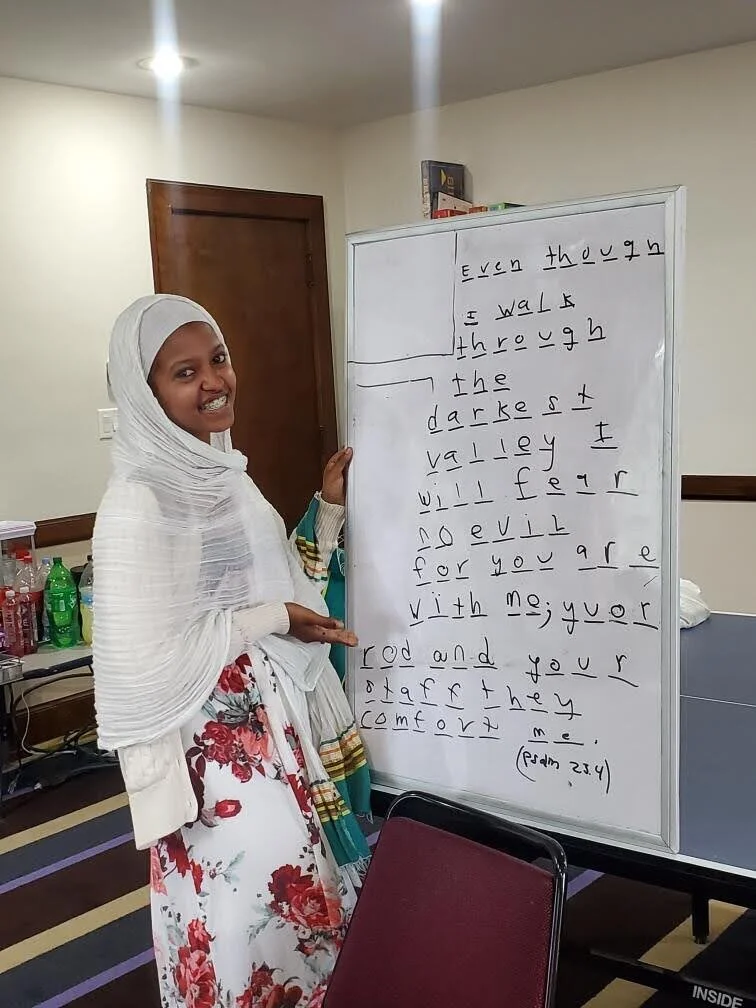 Even though
I walk
through
the
darkest
valley I
will fear
no evil
for you are
with me; yuor
rod and your
staff they
comfort me.
(Psalm 23:4)
INSIDE